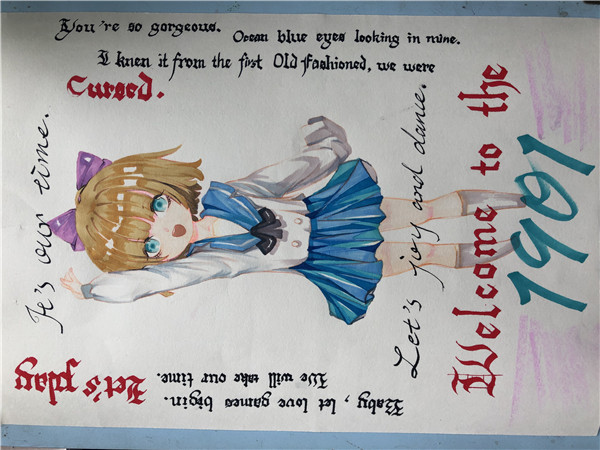 You're so gorgeous.
Ocean blue eyes looking in mine.
I knen it from the first Old Fashioned, we were
Cursed.
It's our time.
Let's joy and dance.
Welcome to the
1901
Let's play
Baby, let love games bigin.
We will take our time.